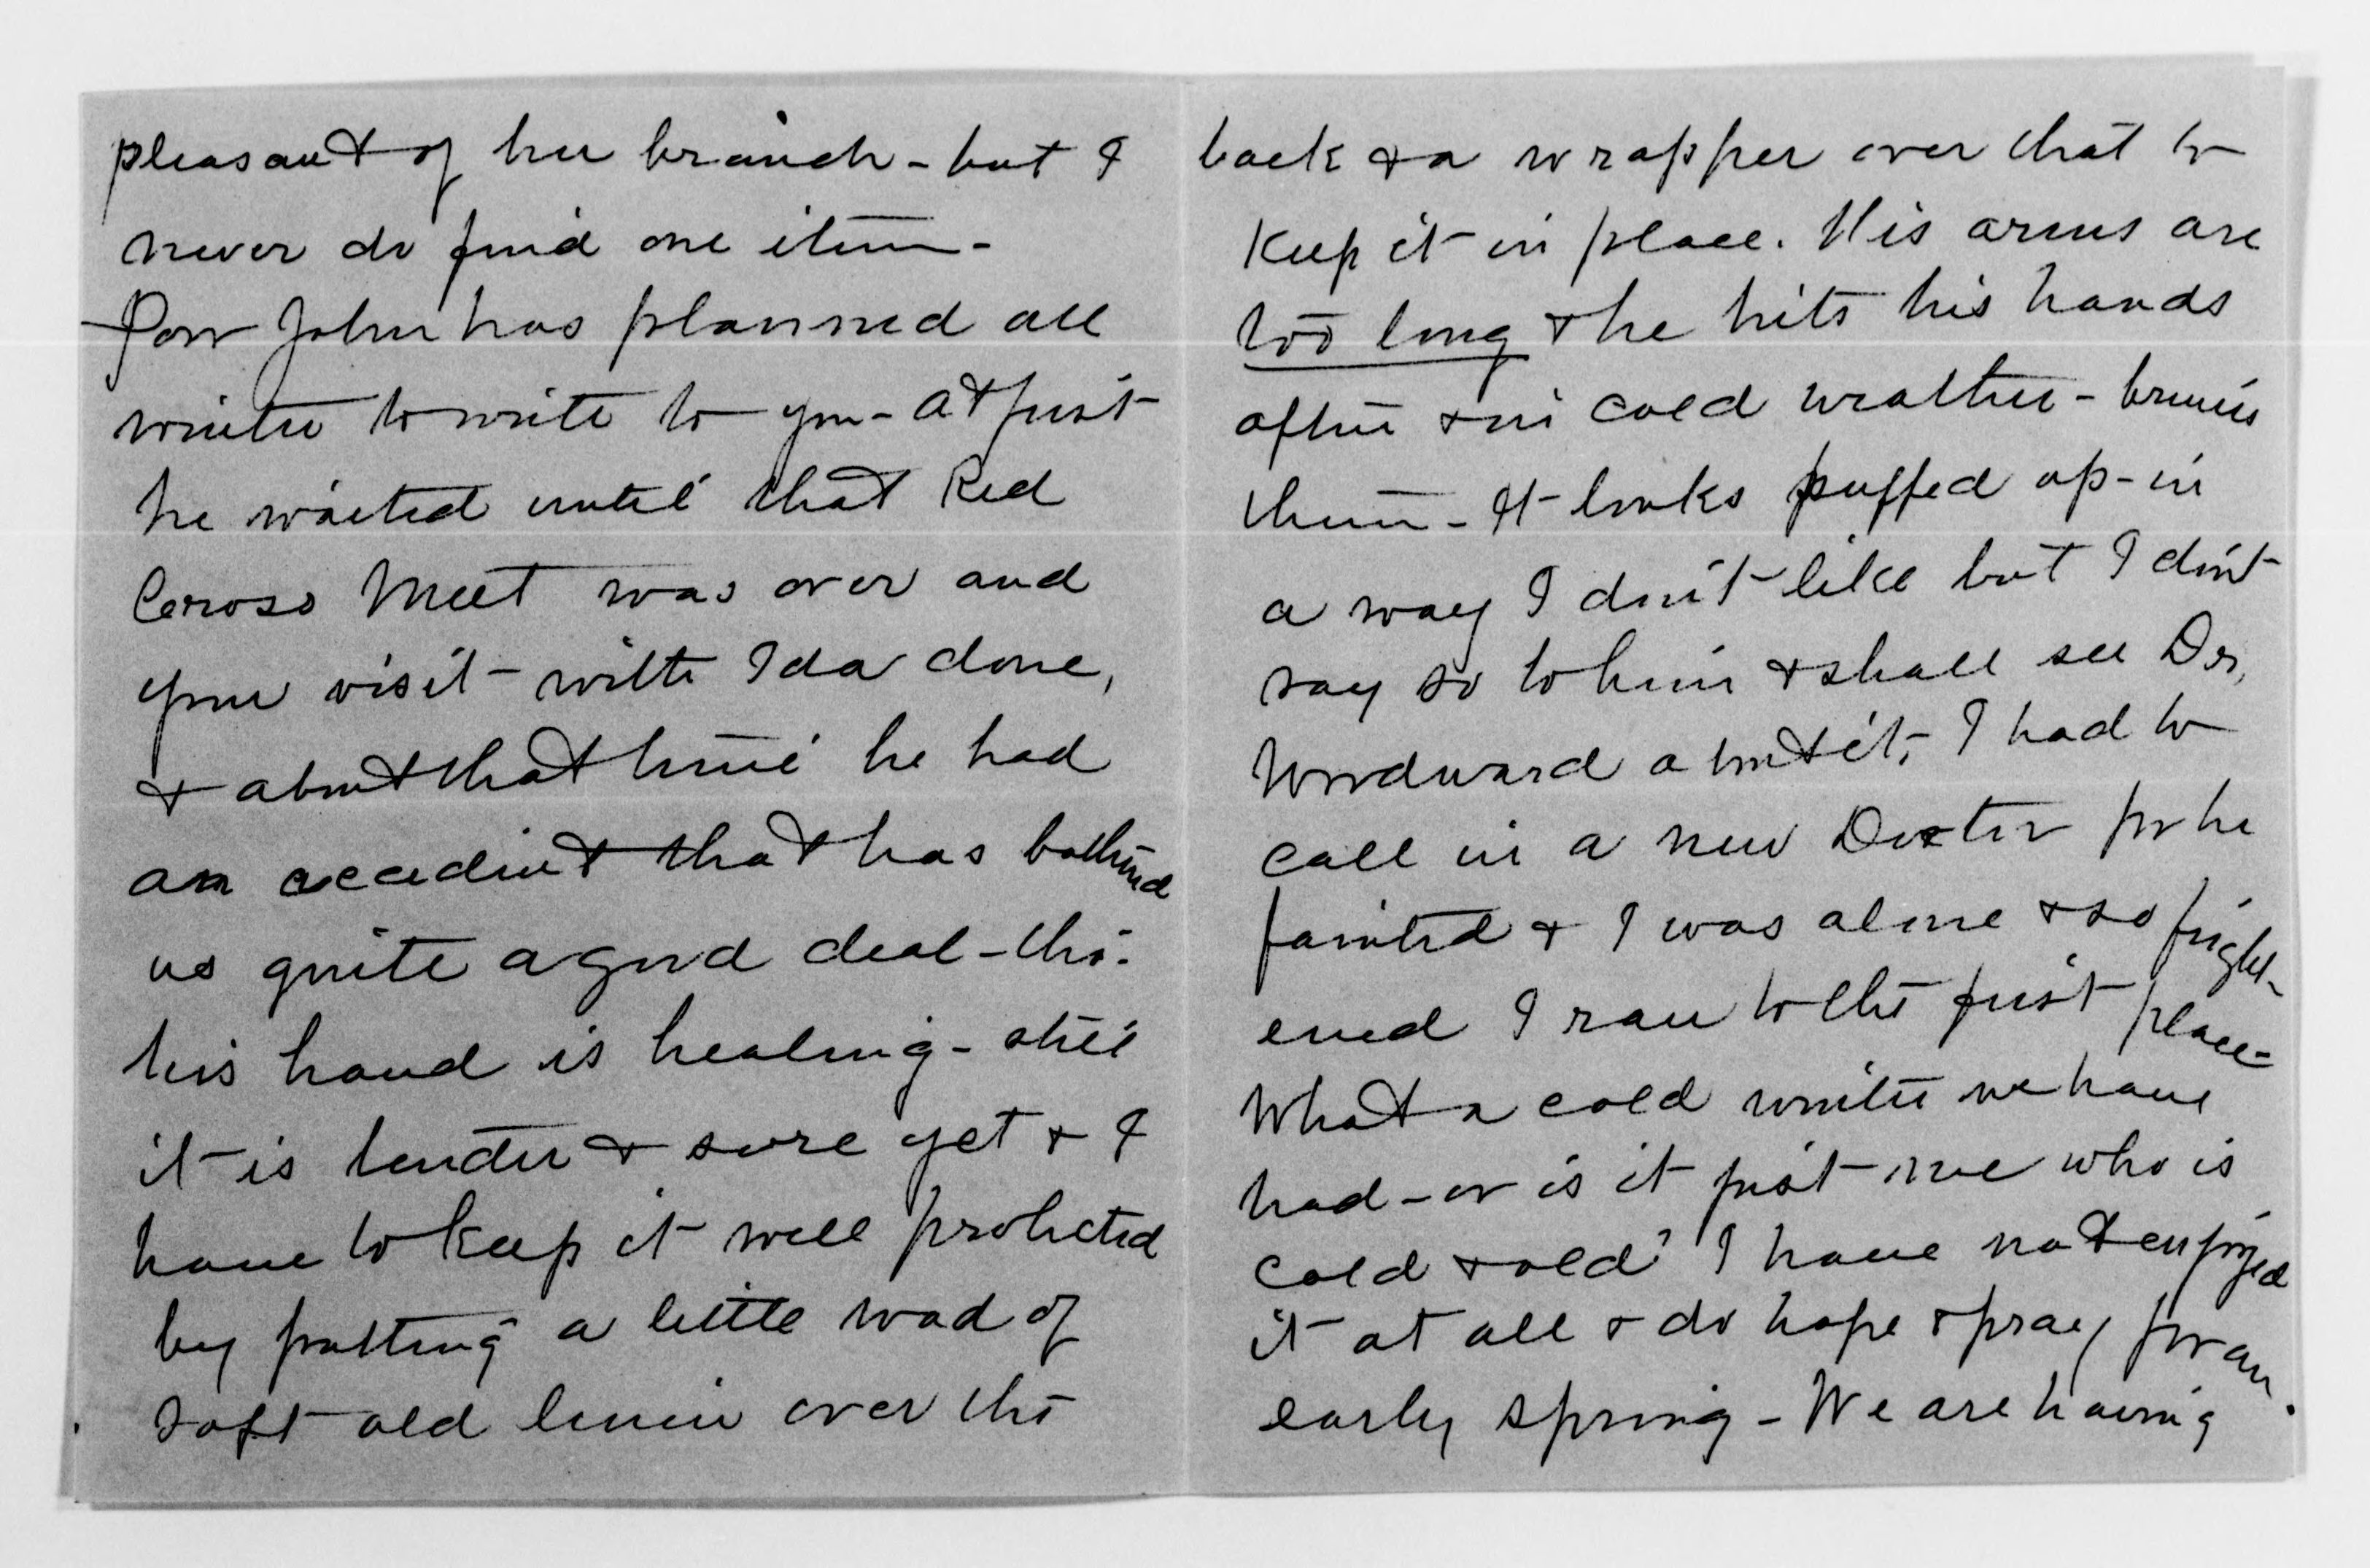 pleasant of her branch - but I
never do find one item -
Poor John has planned all
winter to write to you - At first
he waited until that Red
Cross Meet was over and
your visit with Ida done,
& about that time he had
an accident that has bothered
us quite a good deal - tho'
his hand is healing - still
it is tender & sore yet & I
have to keep it well protected
by putting a little wad of
soft old linen over the
back & a wrapper over that to
keep it in place. His arms are
too long & he hits his hands
often & in cold weather - bruises
them - It looks puffed up - in
a way I don't like but I don't
say so to him & shall see Dr.
Woodward about it, I had to
call in a new Doctor for he
fainted & I was alone & so fright-
ened I ran to the first place -
What a cold winter we have
had - or is it just me who is
cold & old? I have not enjoyed
it at all & do hope & pray for an
early spring - We are having